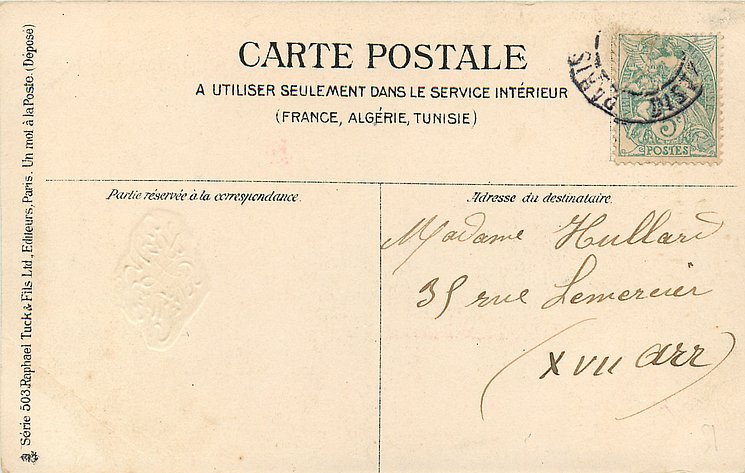 CARTE POSTALE
A UTILISER SEULEMENT DANS LE SERVICE INTÉRIEUR
(FRANCE, ALGÉRIE, TUNISIE)
Série 503. Raphael Tuck & Fils Ltd, Editeurs, Paris. Un mot à la Poste. (Déposé)
PARIS
DIST
5c
POSTES
Partie réservée à la correspondance.
Adresse du destinataire.
Madame Hullard
35 rue Lemercier
(XVII arr)